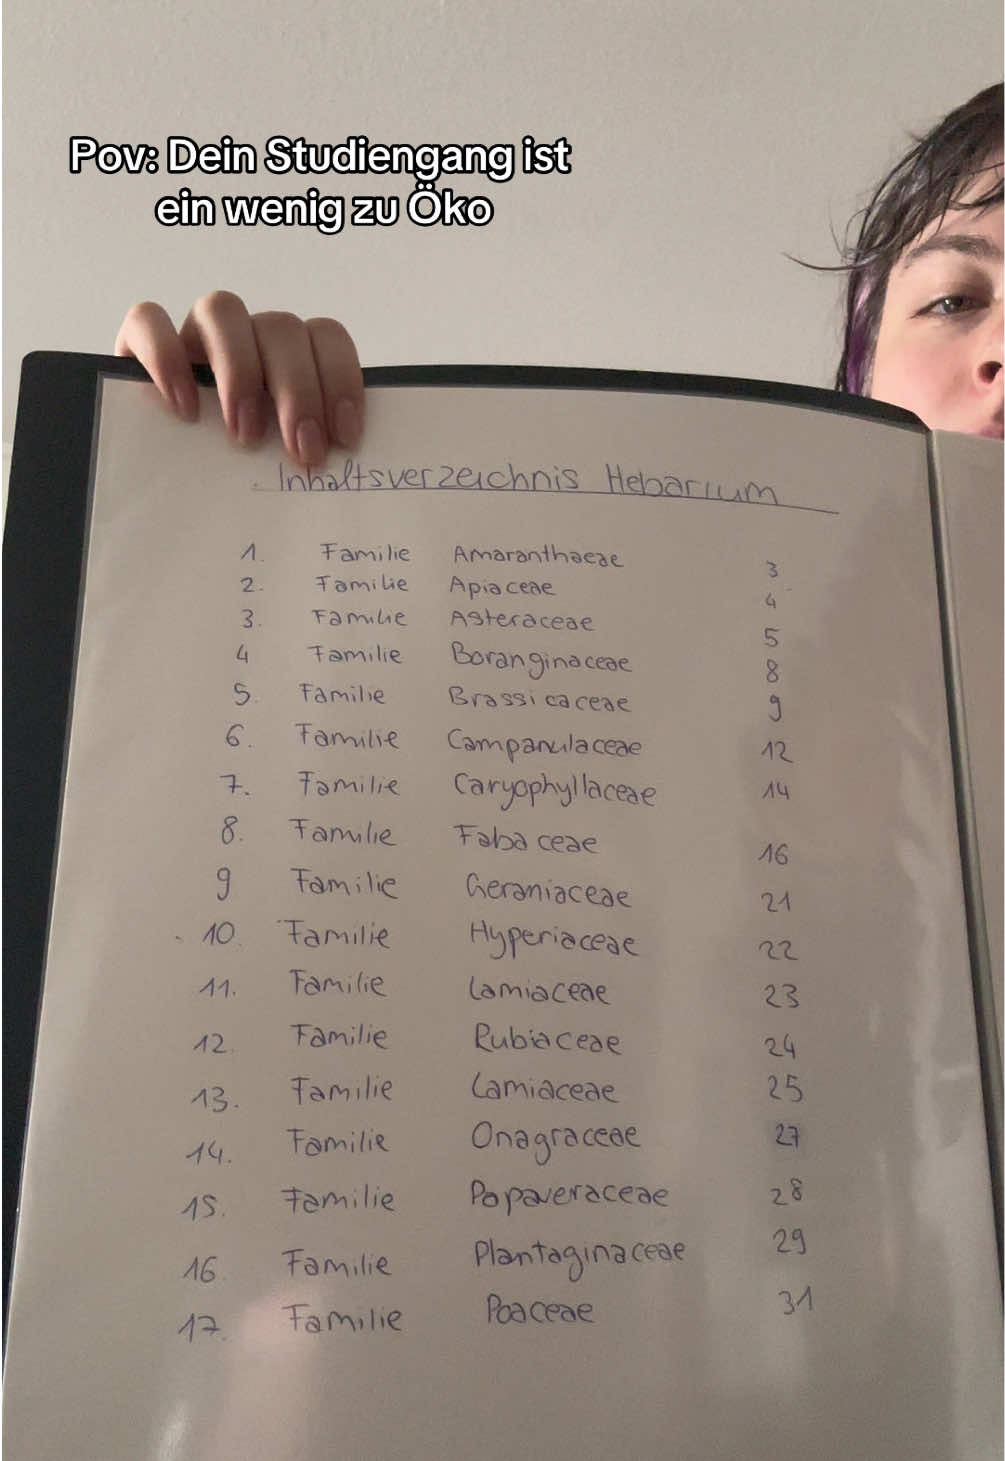 Pov: Dein Studiengang ist
ein wenig zu Öko
Inhaltsverzeichnis Hebarium
1. Familie Amaranthaeae 3
2. Familie Apiaceae 4
3. Familie Asteraceae 5
4 Familie Boranginaceae 8
5. Familie Brassicaceae 9
6. Familie Campanulaceae 12
7. Familie Caryophyllaceae 14
8. Familie Fabaceae 16
9 Familie Geraniaceae 21
10. Familie Hyperiaceae 22
11. Familie Lamiaceae 23
12. Familie Rubiaceae 24
13. Familie Lamiaceae 25
14. Familie Onagraceae 27
15. Familie Papaveraceae 28
16. Familie Plantaginaceae 29
17. Familie Poaceae 31